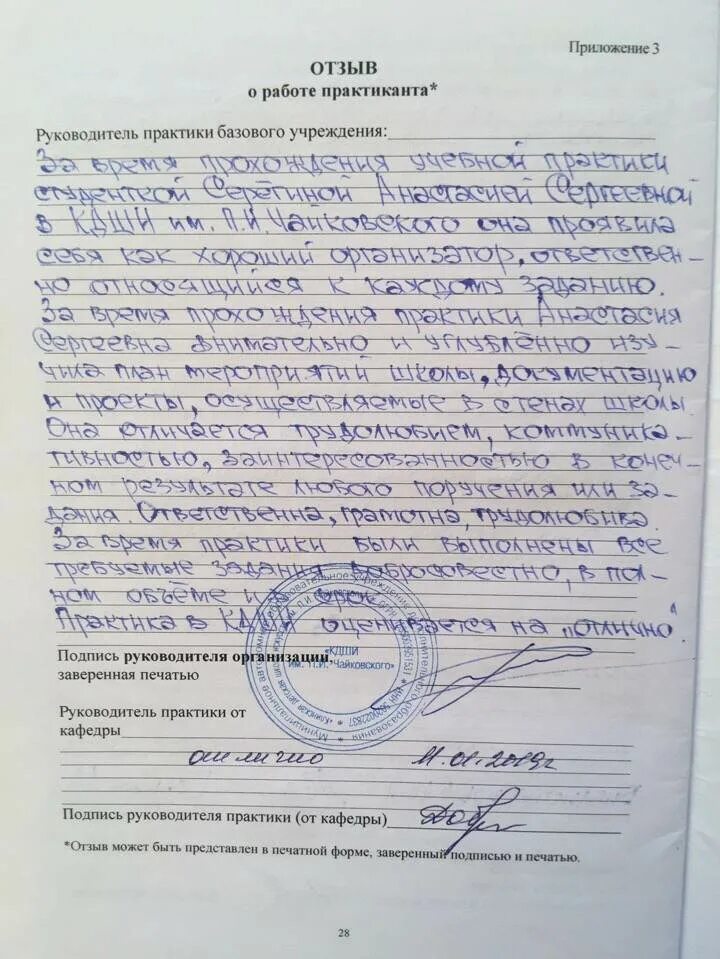 Приложение 3
ОТЗЫВ
о работе практиканта*
Руководитель практики базового учреждения:
За время прохождения учебной практики
студенткой Серёгиной Анастасией Сергеевной
в КДШИ им. П.И. Чайковского она проявила
себя как хороший организатор, ответствен-
но относящийся к каждому заданию.
За время прохождения практики Анастасия
Сергеевна внимательно и углублённо изу-
чила план мероприятий школы, документацию
и проекты, осуществляемые в стенах школы
Она отличается трудолюбием, коммуника-
тивностью, заинтересованностью в конеч-
ном результате любого поручения или за-
дания. Ответственна, грамотна, трудолюбива.
За время практики были выполнены все
требуемые задания добросовестно, в пол-
ном объёме и в срок.
Практика в КДШИ оценивается на „отлично"
Подпись руководителя организации,
заверенная печатью
«КДШИ
им. П.И. Чайковского»
Руководитель практики от
кафедры
отлично 11.01.2019г
Подпись руководителя практики (от кафедры)
*Отзыв может быть представлен в печатной форме, заверенный подписью и печатью.
28